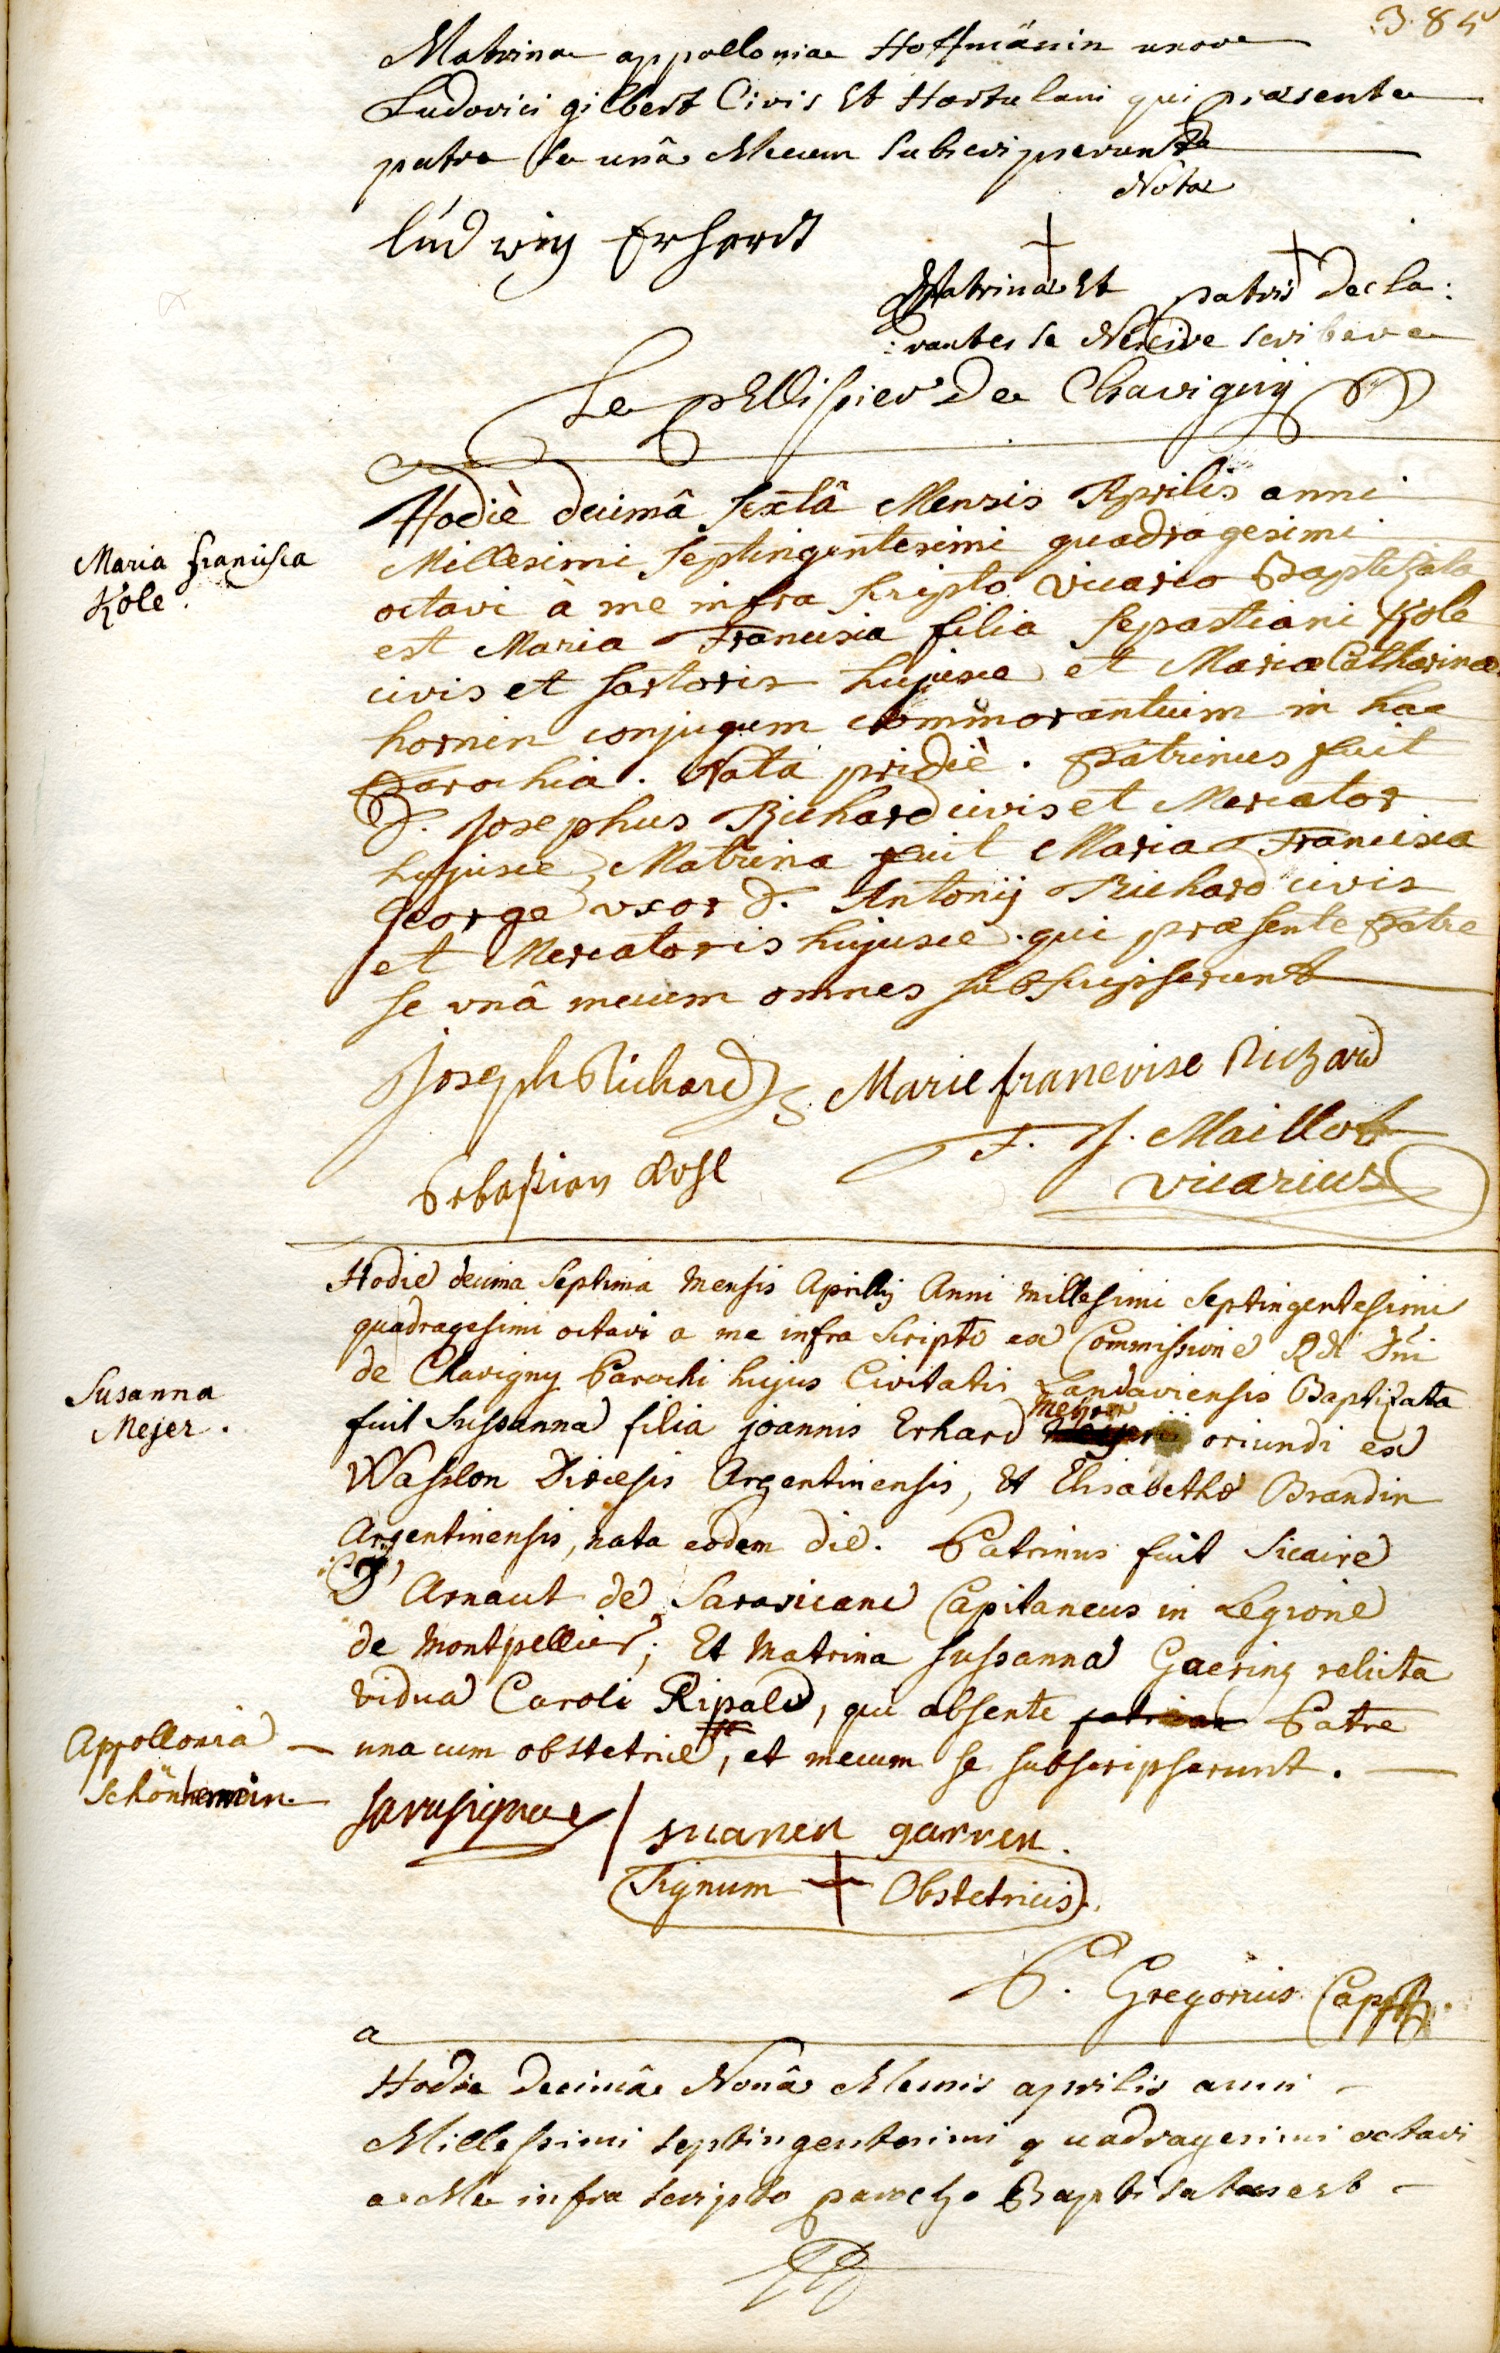 385
Matrina appollonia Hoffmänin uxore
Ludovici gilbert Civis Et Hortulani qui præsente
patre se unâ Mecum Subscripserunt
Nota
ludwig Erhardt
Matrinæ Et patris decla:
:rantes se Nescire scribere
Le pellissier De Chavigny
Hodiè decimâ sextâ Mensis Aprilis anni
Millesimi septingentesimi quadragesimi
octavi à me infra scripto vicario Baptizata
est Maria Francisca filia sepastiani Kole
civis et sartoris hujusce et Mariæ Catharinæ
hornin conjugum commorantium in hac
Parochia. Nata pridiè. Patrinus fuit
D. Josephus Richard civis et Mercator
hujusce, Matrina fuit Maria Francisca
George uxor D. Antonij Richard civis
et Mercatoris hujusce. qui præsente Patre
se vnâ mecum omnes subscripserunt
Maria francisca
Kole.
Joseph Richard Marie francoise Richard
F. J. Maillot
vicarius
Sebastian Kohl
Hodie decima Septima Mensis Aprilis Anni Millesimi Septingentesimi
quadragesimi octavi a me infra Scripto ex Commissione Rdi Dni
de Chavigny Parochi hujus Civitatis Landaviensis Baptizata
Meyer
fuit Susanna filia joannis Erhard oriundi ex
Wasslon Diœcesis Argentinensis, Et Elisabethæ Brandin
Argentinensis, nata eodem die. Patrinus fuit Sicaire
D' Arnaut de Sarasicane Capitaneus in Legione
de Montpellier; Et Matrina Susanna Gaering relicta
vidua Caroli Ripald, qui absente Patre
una cum obstetrice, et mecum se subscripserunt.
Susanna
Mejer.
Appollonia
Schön
sarasignac suanen garren.
Signum + Obstetricis.
P. Gregorius Capp.
a
Hodie Decimâ Nonâ Mensis aprilis anni
Millessimi septingentesimi quadragesimi octavi
a Me infra scripto parocho Baptisata est